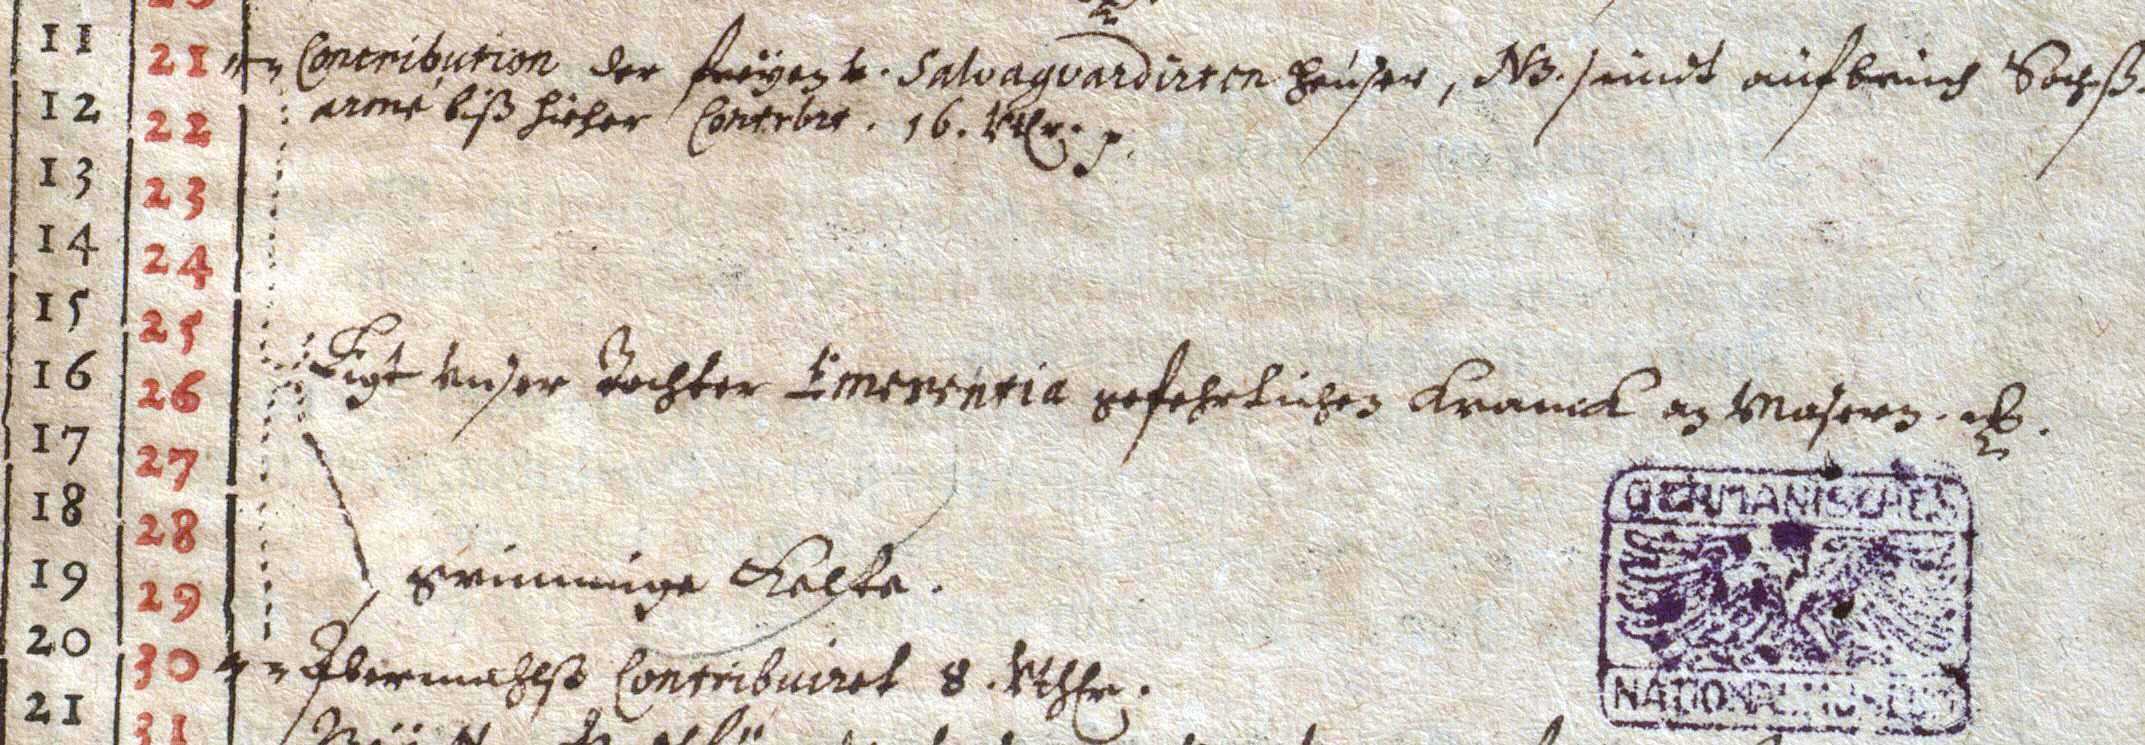 11 21 Contribution der freÿen v. Salvaguardirten Heuser, NB. seindt aufbruch Sachß.
12 22 armé biß hieher Contrbrt. 16. Rthlr. p.
13 23
14 24
15 25
16 26 Ligt unser Tochter Emerentia gefehrlichen Kranck an Masern. etc.
17 27
18 28
19 29 grimmige Kelte.
20 30 Abermahlß Contribuiret 8. Rthlr.
21 31
GERMANISCHES
NATIONALMUSEUM